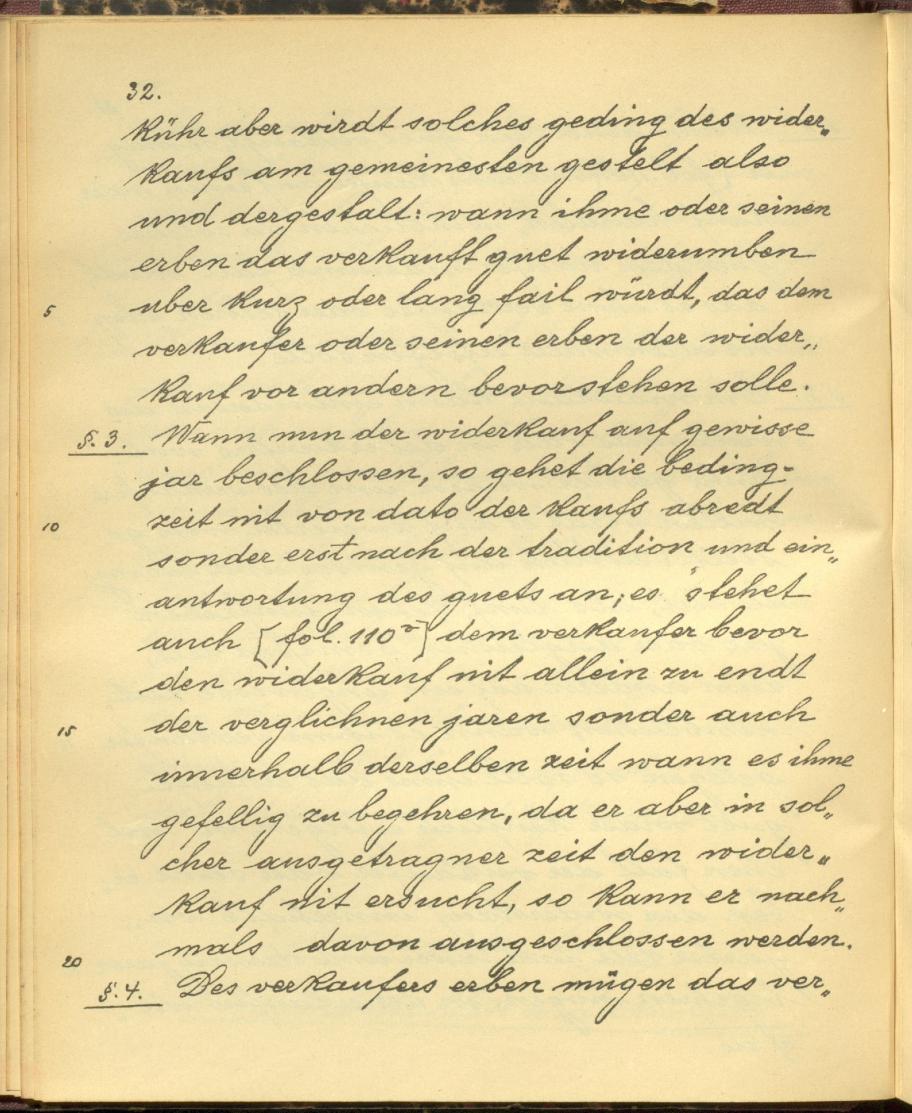 32.
kühr aber wirdt solches geding des wider„
kaufs am gemeinesten gestelt also
und dergestalt: wann ihme oder seinen
erben das verkauft guet widerumben
5 uber kurz oder lang fail würdt, das dem
verkaufer oder seinen erben der wider„
kauf vor andern bevorstehen solle.
§. 3. Wann nun der widerkauf auf gewisse
jar beschlossen, so gehet die beding-
10 zeit nit von dato der kaufs abredt
sonder erst nach der tradition und ein„
antwortung des guets an; es stehet
auch [fol. 110ᵛ] dem verkaufer bevor
den widerkauf nit allein zu endt
15 der verglichnen jaren sonder auch
innerhalb derselben zeit wann es ihme
gefellig zu begehren, da er aber in sol„
cher ausgetragner zeit den wider„
kauf nit ersucht, so kann er nach„
20 mals davon ausgeschlossen werden.
§. 4. Des verkaufers erben mügen das ver„